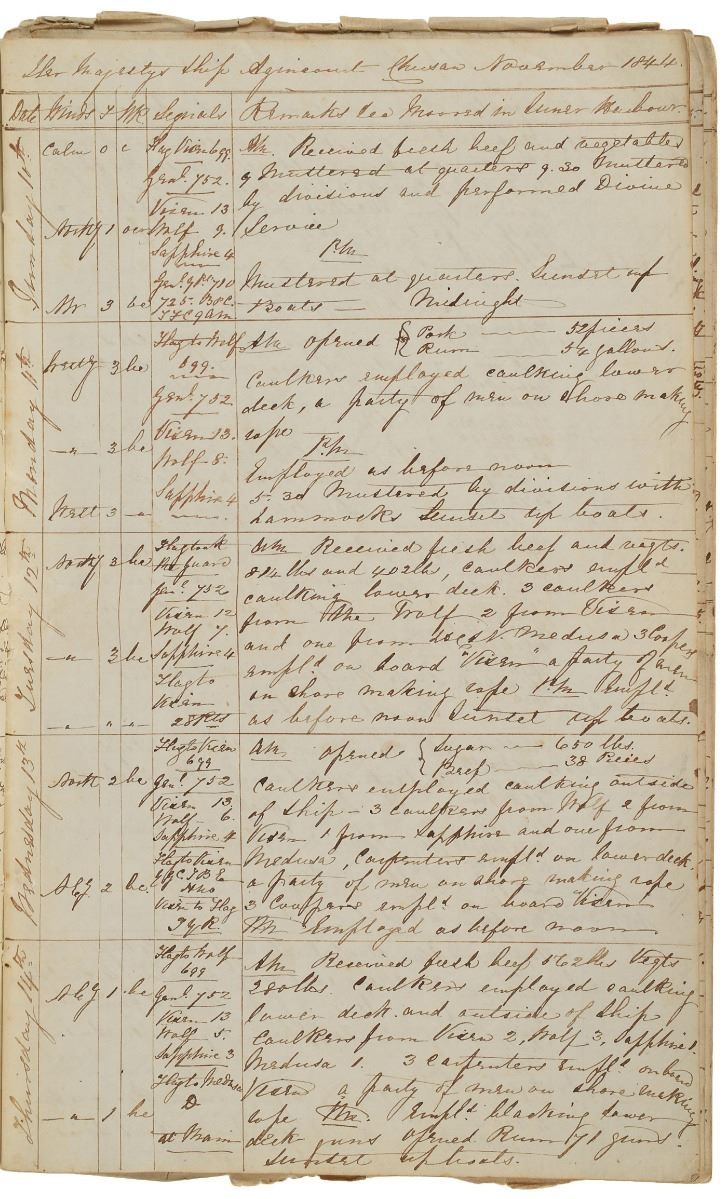 Her Majestys Ship Agincourt Chusan November 1844.
Date Winds F Wr Signals Remarks &ca Moored in Inner Harbour.
Sunday 10th
Calm 0 c
North 1
3 bc
Vixen 699
Genl. 752.
Vixen 13
Wolf 9.
Sapphire 4
Am Received fresh beef and vegetables
9 Mustered at quarters 9.30 Mustered
by divisions and performed Divine
Service
P.M
Mustered at quarters. Sunset up
Boats — Midnight
Monday 11th
3 bc
—"— 3 bc
West 3 —"—
Flag to Wolf
699.
Genl. 752
Vixen 13.
Wolf 8.
Sapphire 4
Am opened { Pork —— 52 pieces
Rum — 54 gallons.
Caulkers employed caulking lower
deck, a party of men on shore making
rope
P.M
Employed as before noon
5.30 Mustered by divisions with
hammocks Sunset up boats.
Tuesday 12th
3 bc
—"— 3 bc
" " "
Genl. 752
Vixen 12
Wolf 7.
Sapphire 4
Flag to
Vixen
Am Received fresh beef and vegts.
814 lbs and 402 lb, Caulkers empld
caulking lower deck. 3 caulkers
from the Wolf 2 from Vixen
and one from Medusa 3 Coopers
empld on board "Vixen" a party of men
on shore making rope P.M Empld
as before noon Sunset up boats.
Wednesday 13th
North 2 bc
2 bc.
Flag to Vixen
699
Genl. 752
Vixen 13
Wolf 6.
Sapphire 4
Flag to Vixen
Vixen to Flag
Am opened { Sugar —— 650 lbs.
Beef —— 38 Peices
Caulkers employed caulking outside
of Ship — 3 caulkers from Wolf 2 from
Vixen 1 from Sapphire and one from
Medusa, Carpenters empld on lower deck
a party of men on shore making rope
3 Coopers empld on board Vixen
PM Employed as before noon
Thursday 14th
1 bc
—"— 1 bc
Flag to Wolf
699
Genl. 752
Vixen 13
Wolf 5.
Sapphire 3
Flag to Medusa
D
at Main
Am Received fresh beef 562 lbs Vegts
280 lbs. Caulkers employed caulking
lower deck and outside of Ship
Caulkers from Vixen 2, Wolf 3, Sapphire 1.
Medusa 1. 3 Carpenters empld onboard
Vixen a party of men on shore making
rope Pm. Empld blacking lower
deck guns opened Rum 71
Sunset up boats.